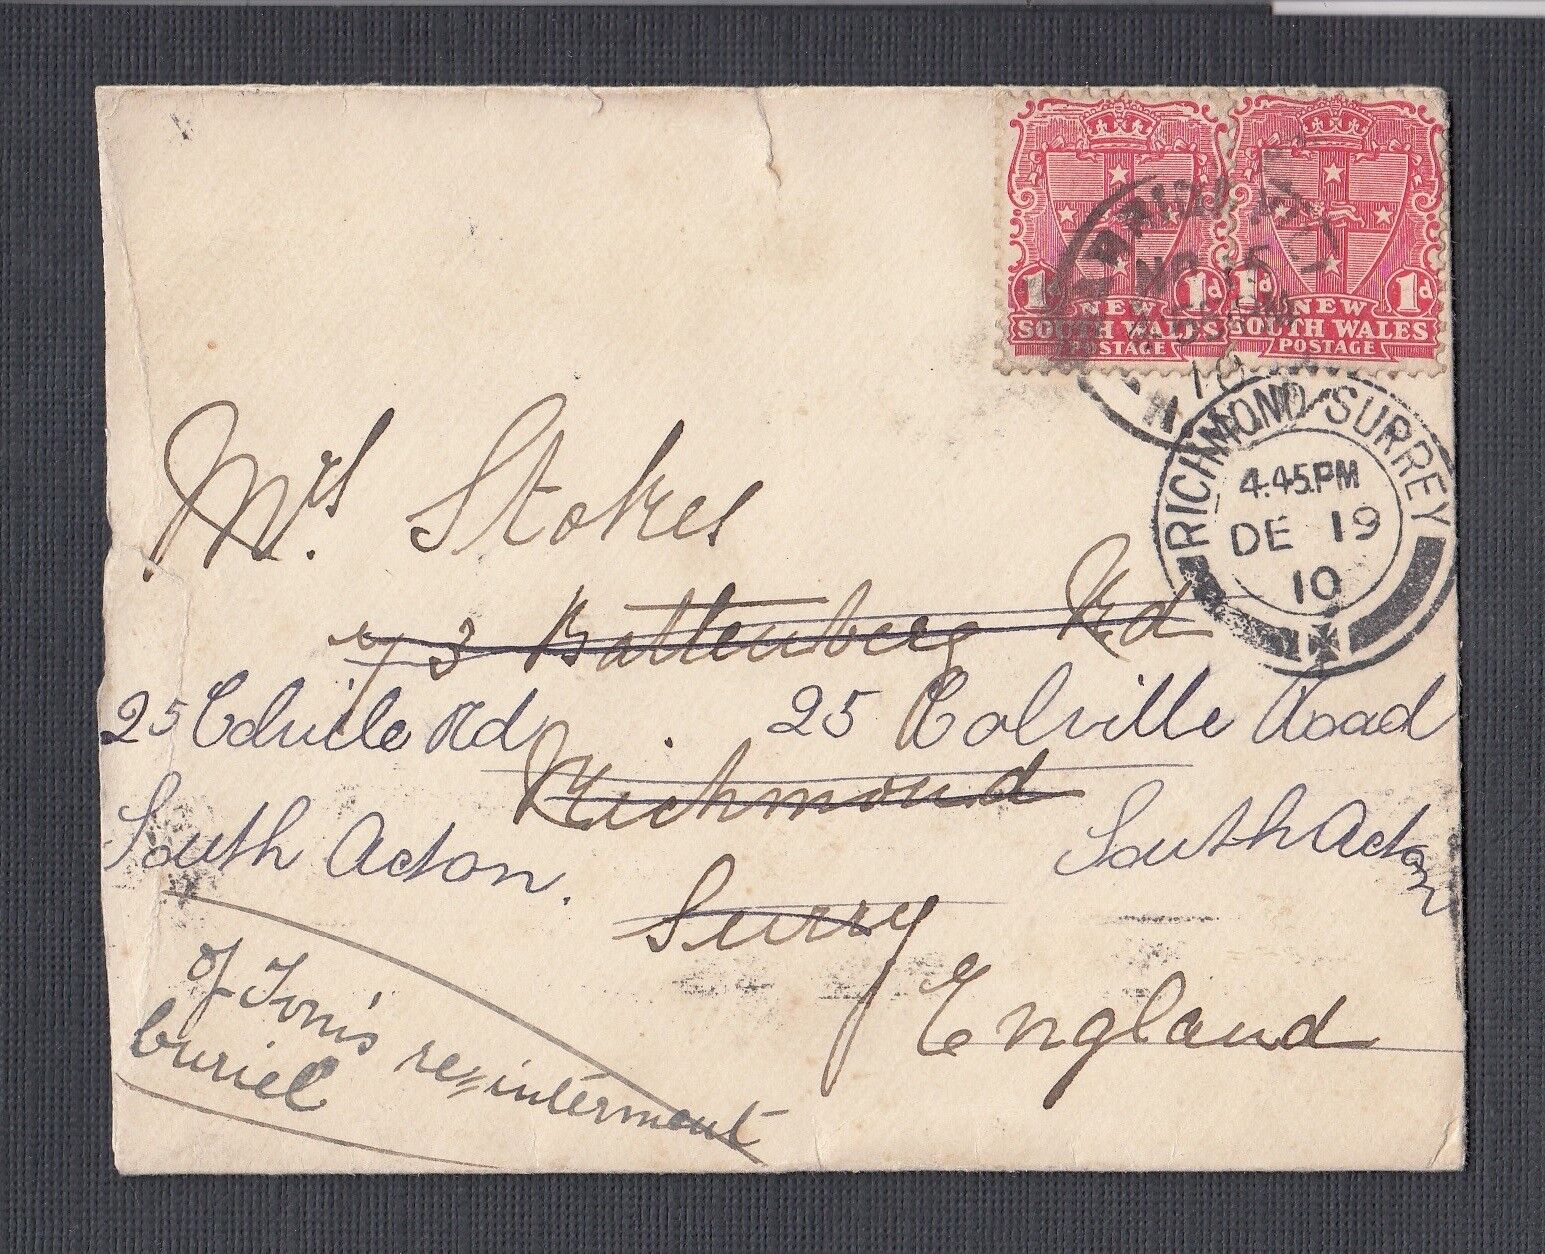 1d 1d
NEW
SOUTH WALES
POSTAGE
1d 1d
NEW
SOUTH WALES
POSTAGE
NO 15
PM
10
RICHMOND SURREY
4.45.PM
DE 19
10
Mrs. Stokes
3 Battenberg Rd
25 Colville Rd
25 Colville Road
Richmond
South Acton.
South Acton
Surry
England
of Tom's re=interment
buriel